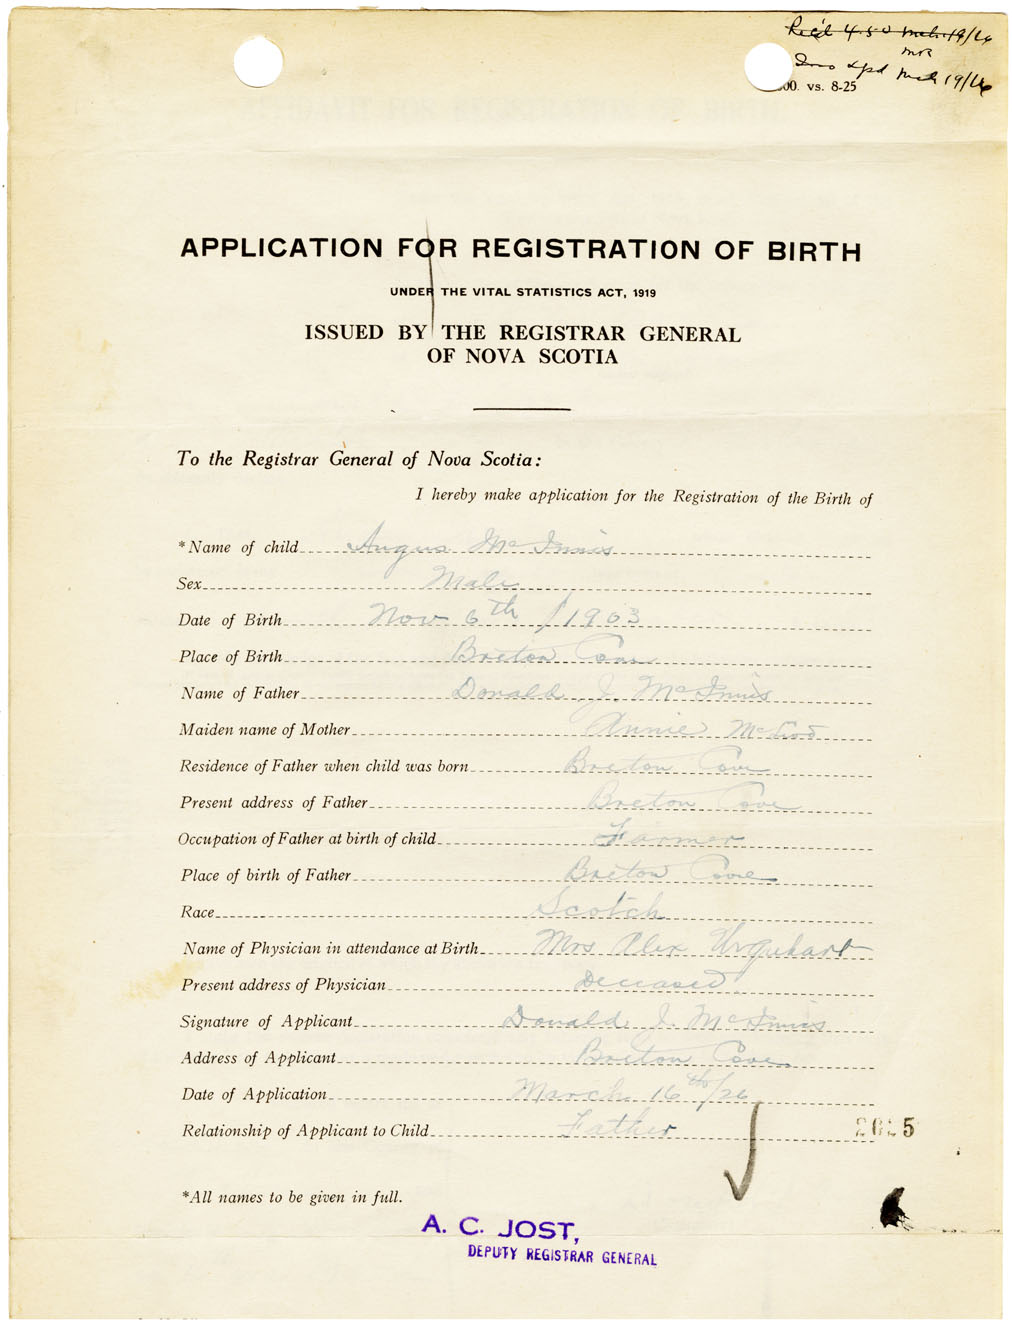 Rec'd 4.50 Mch. 19/26
MR
Mch 19/26
00. vs. 8-25
APPLICATION FOR REGISTRATION OF BIRTH
UNDER THE VITAL STATISTICS ACT, 1919
ISSUED BY THE REGISTRAR GENERAL
OF NOVA SCOTIA
To the Registrar General of Nova Scotia:
I hereby make application for the Registration of the Birth of
*Name of child Angus McInnis
Sex Male
Date of Birth Nov 6th /1903
Place of Birth Breton Cove
Name of Father Donald J. McInnis
Maiden name of Mother Annie McLeod
Residence of Father when child was born Breton Cove
Present address of Father Breton Cove
Occupation of Father at birth of child Farmer
Place of birth of Father Breton Cove
Race Scotch
Name of Physician in attendance at Birth Mrs Alex Urquhart
Present address of Physician Deceased
Signature of Applicant Donald J. McInnis
Address of Applicant Breton Cove
Date of Application March 16th/26
Relationship of Applicant to Child Father
*All names to be given in full.
A. C. JOST,
DEPUTY REGISTRAR GENERAL